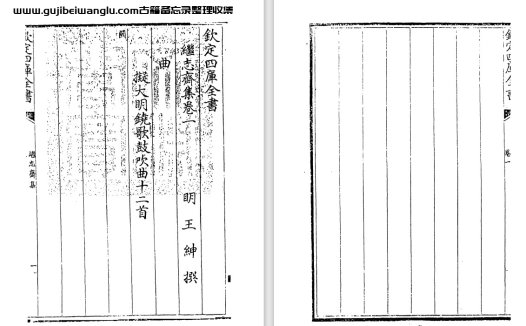 www.gujibeiwanglu.com古籍备忘录整理收集
欽定四庫全書
繼志齋集卷一
明 王紳 撰
曲
擬大明鐃歌鼓吹曲十二首
闕
欽定四庫全書
繼志齋集
一
欽定四庫全書
卷一